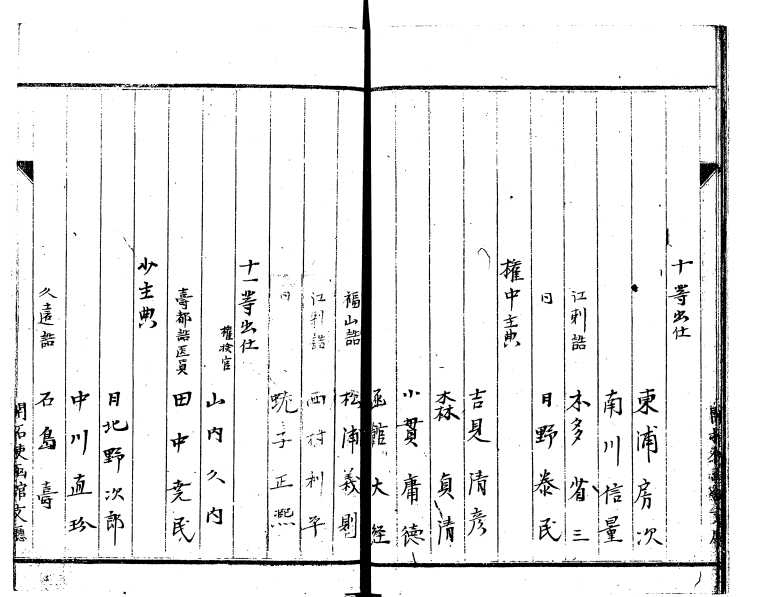 十等出仕
東浦房次
南川信量
江刺詰 本多省三
同 日野泰民
権中主典
吉見清彦
森貞清
小貫庸徳
函館大経
福山詰 松浦義則
江刺詰 西村利平
同 蛯子正熈
十一等出仕
権検官 山内久内
壽都詰医員 田中尭民
少主典
日北野次郎
中川直珍
久遠詰 石島壽
開拓使函館支廳